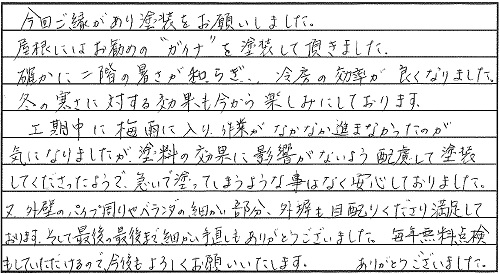 今回ご縁があり塗装をお願いしました。
屋根にはお勧めの"ガイナ"を塗装して頂きました。
確かに二階の暑さが和らぎ、冷房の効率が良くなりました。
冬の寒さに対する効果も今から楽しみにしております。
工期中に梅雨に入り、作業がなかなか進まなかったのが
気になりましたが、塗料の効果に影響がないよう配慮して塗装
してくださったようで、急いで塗ってしまうような事はなく安心しておりました。
又、外壁のパイプ周りやベランダの細かい部分、外塀も目配りくださり満足して
おります。そして最後の最後まで細かい手直しもありがとうございました。毎年無料点検
もしていただけるので、今後もよろしくお願いいたします。ありがとうございました。